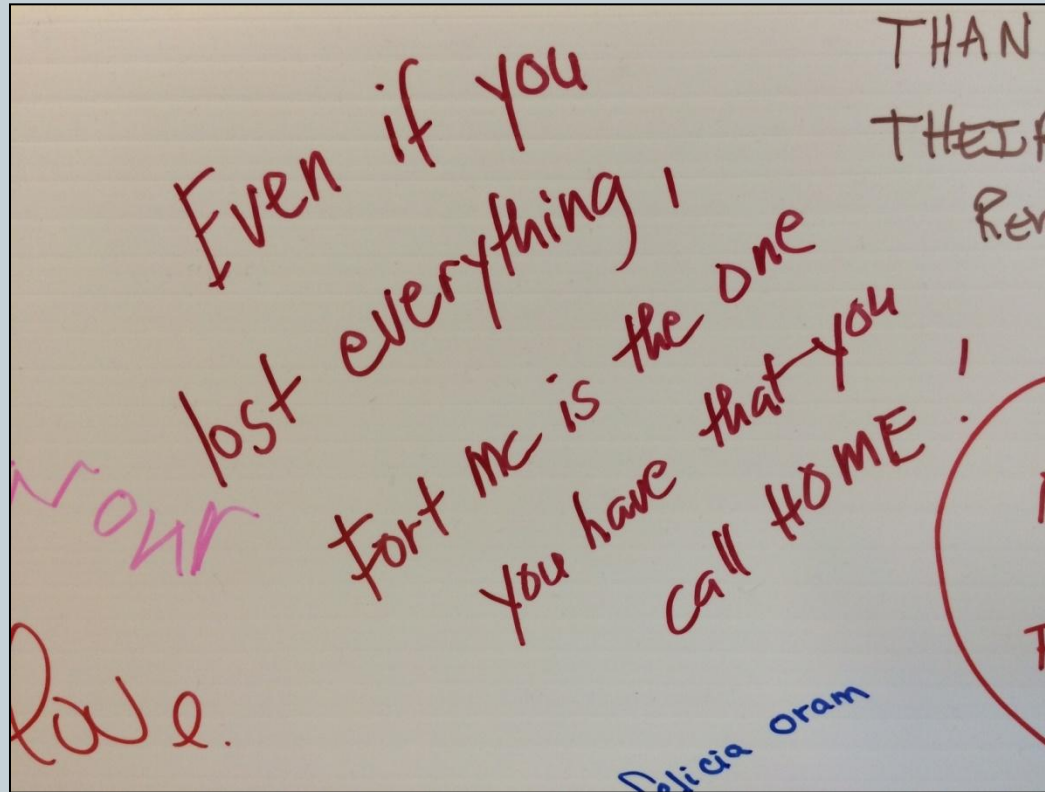 Even if you
lost everything,
Fort mc is the one
you have that you
call HOME!
THAN
THEIR
our
love.
Felicia oram